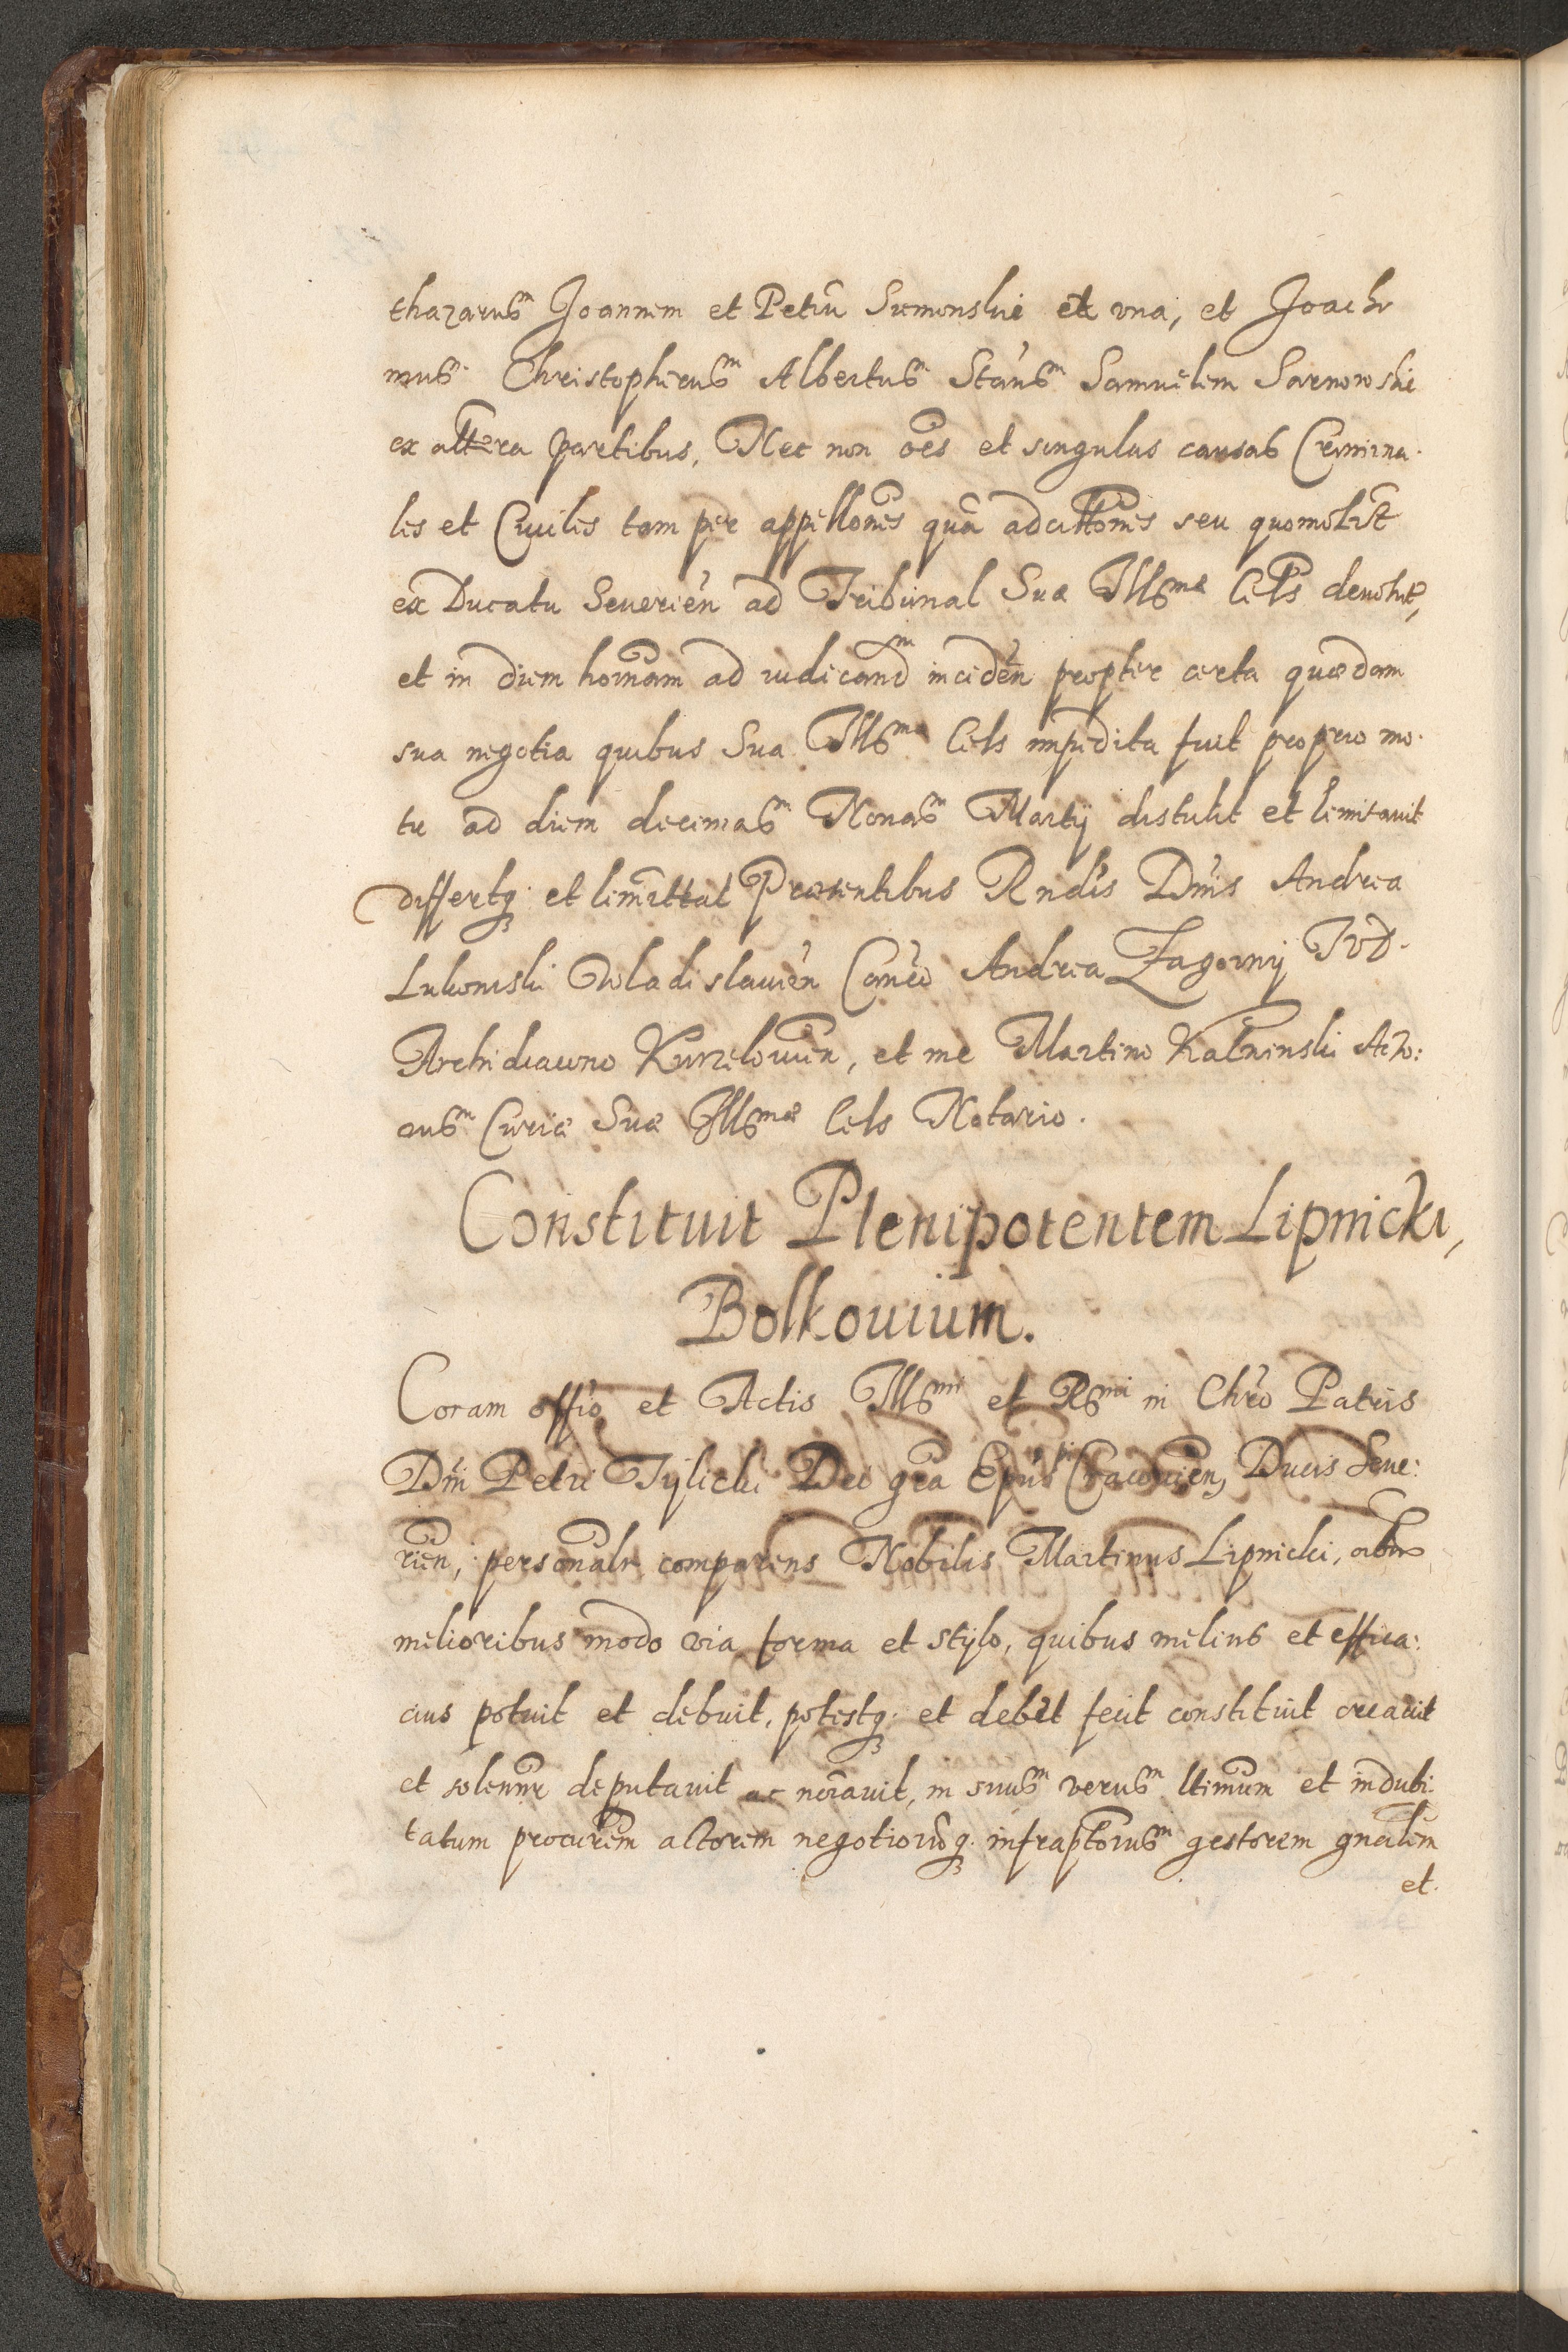 thazarus̃ᵐ Joannem et Petrũ Siemonski et una, et Joachi
mus̃ᵐ Christopherus̃ᵐ Albertus̃ᵐ Stãus̃ᵐ Samuelem Sarnowski
ex altera partibus. Nec non oẽs et singulas causas Crimina-
les et Ciuiles tam per appellõnes quã ad cittõnes seu quomolibt
ex Ducatu Seuerień ad Tribunal Suæ Illsᵐᵃᵉ Cels deuolut,
et in diem hornam ad iudicandᵐ inciden propter certa quædam
sua negotia quibus Sua Illsᵐᵃ Cels impedita fuit proprio mo-
tu ad diem decimasᵐ Nonasᵐ Martij distulit et limitauit
differtq; et limittat Præsentibus Rndis Dnis Andrea
Lukomski Wladislauień Canco Andrea Zagorny JVD.
Archidiacono Kurzelouien, et me Martino Kalninski Acto:
rusᵐ Curiæ Suæ Illsᵐᵃᵉ Cels Notario.
Constituit Plenipotentem Lipnicki,
Bolkouium.
Coram offio et Actis Illsᵐⁱ et Rsᵐⁱ in Chro Patris
Dni Petri Tylicki Dei gra Epus̃ᵖⁱ Cracouien, Ducis Seue:
rien, personalr comparens Nobilis Martinus Lipnicki, oibus
melioribus modo via forma et stylo, quibus melius et effica:
cius potuit et debuit, potestq; et debet fecit constituit creauit
et solennr deputauit ac noiauit, in suusᵐ verusᵐ ltimum et indubi:
tatum procurem actorem negotiorũq; infraptorusᵐ gestorem gnalem
et.